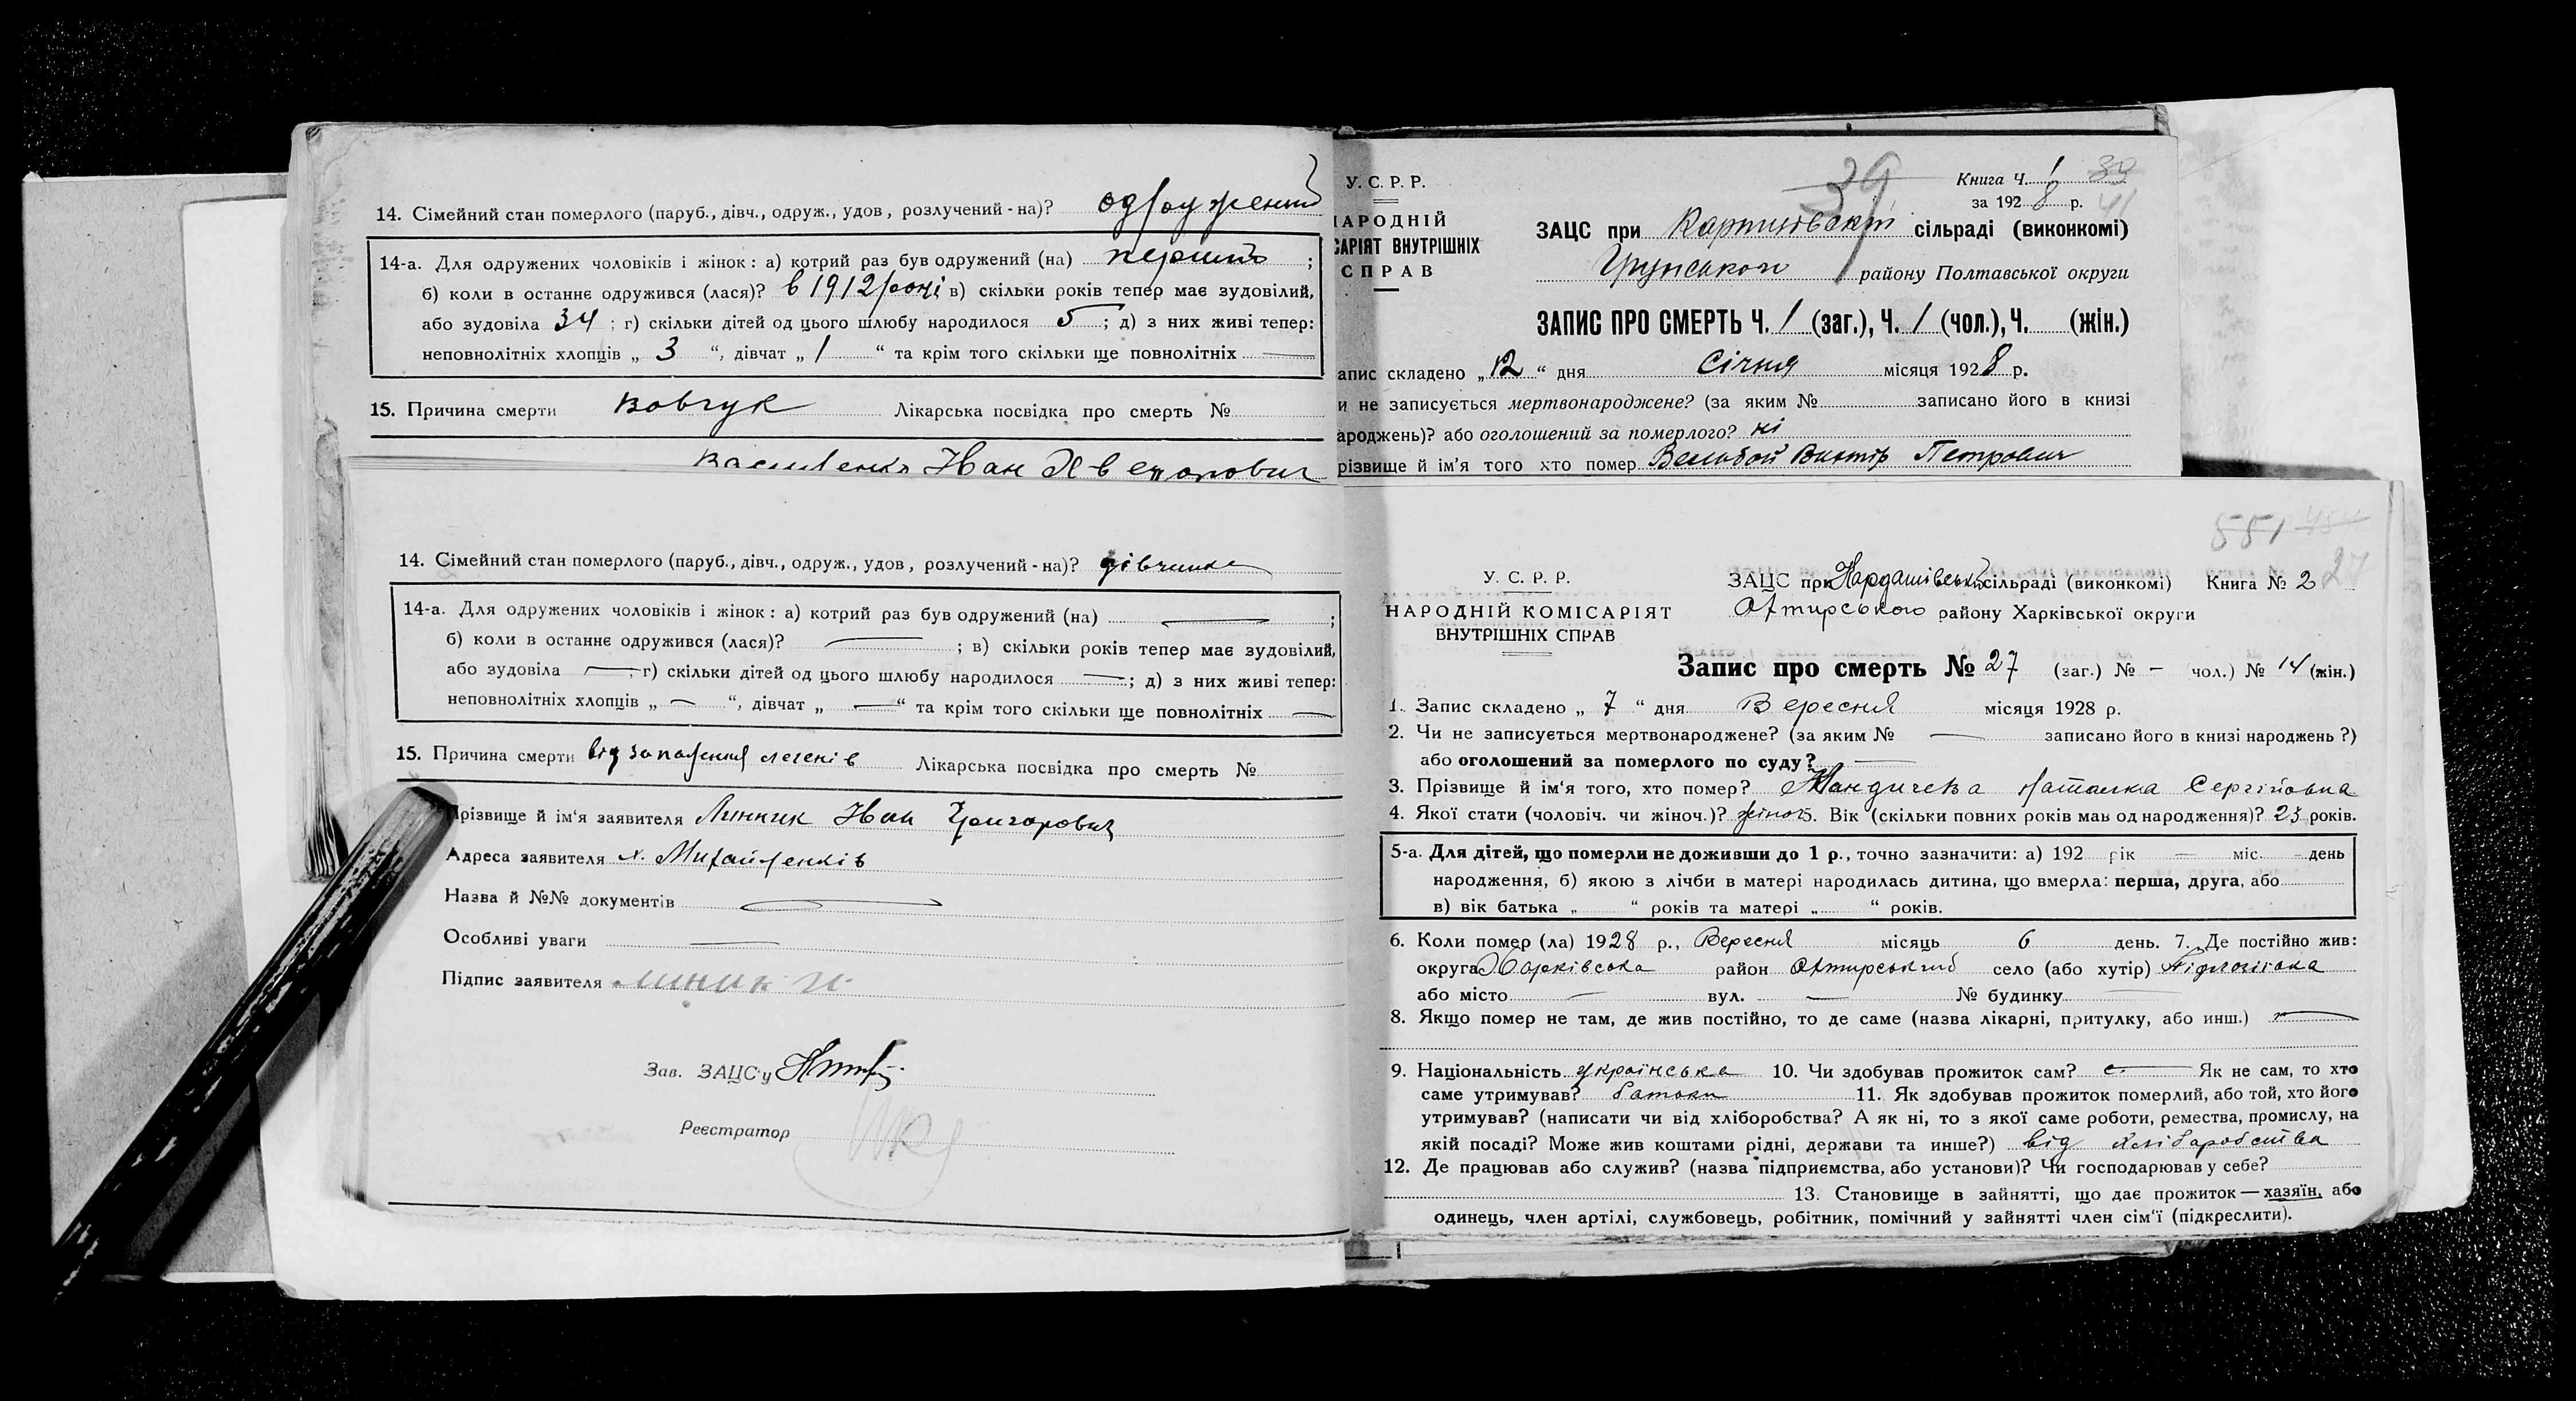 14. Сімейний стан померлого (паруб., дівч., одруж., удов, розлучений-на)? одружений
14-а. Для одружених чоловіків і жінок: а) котрий раз був одружений (на) перший;
б) коли в останнє одружився (лася)? в 1912 році в) скільки років тепер має зудовілий,
або зудовіла 34; г) скільки дітей од цього шлюбу народилося 5; д) з них живі тепер:
неповнолітніх хлопців „ 3 “, дівчат „ 1 “ та крім того скільки ще повнолітніх —
15. Причина смерти вовчук Лікарська посвідка про смерть №
Василенко Иван
14. Сімейний стан померлого (паруб., дівч., одруж., удов, розлучений-на)? дівчинка
14-а. Для одружених чоловіків і жінок: а) котрий раз був одружений (на) — ;
б) коли в останнє одружився (лася)? — ; в) скільки років тепер має зудовілий,
або зудовіла — ; г) скільки дітей од цього шлюбу народилося — ; д) з них живі тепер:
неповнолітніх хлопців „ — “, дівчат „ — “ та крім того скільки ще повнолітніх —
15. Причина смерти від запалення легенів Лікарська посвідка про смерть №
Прізвище й ім'я заявителя Линник Иван Григорович
Адреса заявителя х. Михайленків
Назва й №№ документів —
Особливі уваги —
Підпис заявителя Линик И
Зав. ЗАЦС'у
Реєстратор
39
У. С. Р. Р.
Книга Ч. 1 39
за 1928 р. 41
НАРОДНІЙ
САРІЯТ ВНУТРІШНІХ
СПРАВ
ЗАЦС при сільраді (виконкомі)
Грунського району Полтавської округи
ЗАПИС ПРО СМЕРТЬ Ч. 1 (заг.), Ч. 1 (чол.), Ч. (жін.)
апис складено „12“ дня Січня місяця 1928 р.
и не записується мертвонароджене? (за яким № записано його в книзі
ароджень)? або оголошений за померлого? ні
різвище й ім'я того хто помер Петрович
551 27
У. С. Р. Р.
НАРОДНІЙ КОМІСАРІЯТ
ВНУТРІШНІХ СПРАВ
ЗАЦС при сільраді (виконкомі) Книга № 2
Охтирського району Харківської округи
Запис про смерть № 27 (заг.) № — чол.) № 14 (жін.)
1. Запис складено „ 7 “ дня Вересня місяця 1928 р.
2. Чи не записується мертвонароджене? (за яким № — записано його в книзі народжень?)
або оголошений за померлого по суду? —
3. Прізвище й ім'я того, хто помер? Наталка Сергіївна
4. Якої стати (чоловіч. чи жіноч.)? жіноч 5. Вік (скільки повних років мав од народження)? 23 років.
5-а. Для дітей, що померли не доживши до 1 р., точно зазначити: а) 192 рік — міс. — день
народження, б) якою з лічби в матері народилась дитина, що вмерла: перша, друга, або
в) вік батька „ “ років та матері „ “ років.
6. Коли помер (ла) 1928 р., Вересня місяць 6 день. 7. Де постійно жив:
округа Харківська район Охтирський село (або хутір)
або місто — вул. — № будинку —
8. Якщо помер не там, де жив постійно, то де саме (назва лікарні, притулку, або инш.) —
9. Національність українська 10. Чи здобував прожиток сам? — Як не сам, то хто
саме утримував? батьки 11. Як здобував прожиток померлий, або той, хто його
утримував? (написати чи від хліборобства? А як ні, то з якої саме роботи, ремества, промислу, на
якій посаді? Може жив коштами рідні, держави та инше?) від хліборобства
12. Де працював або служив? (назва підприємства, або установи)? Чи господарював у себе?
13. Становище в зайнятті, що дає прожиток — хазяїн, або
одинець, член артілі, службовець, робітник, помічний у зайнятті член сім'ї (підкреслити).